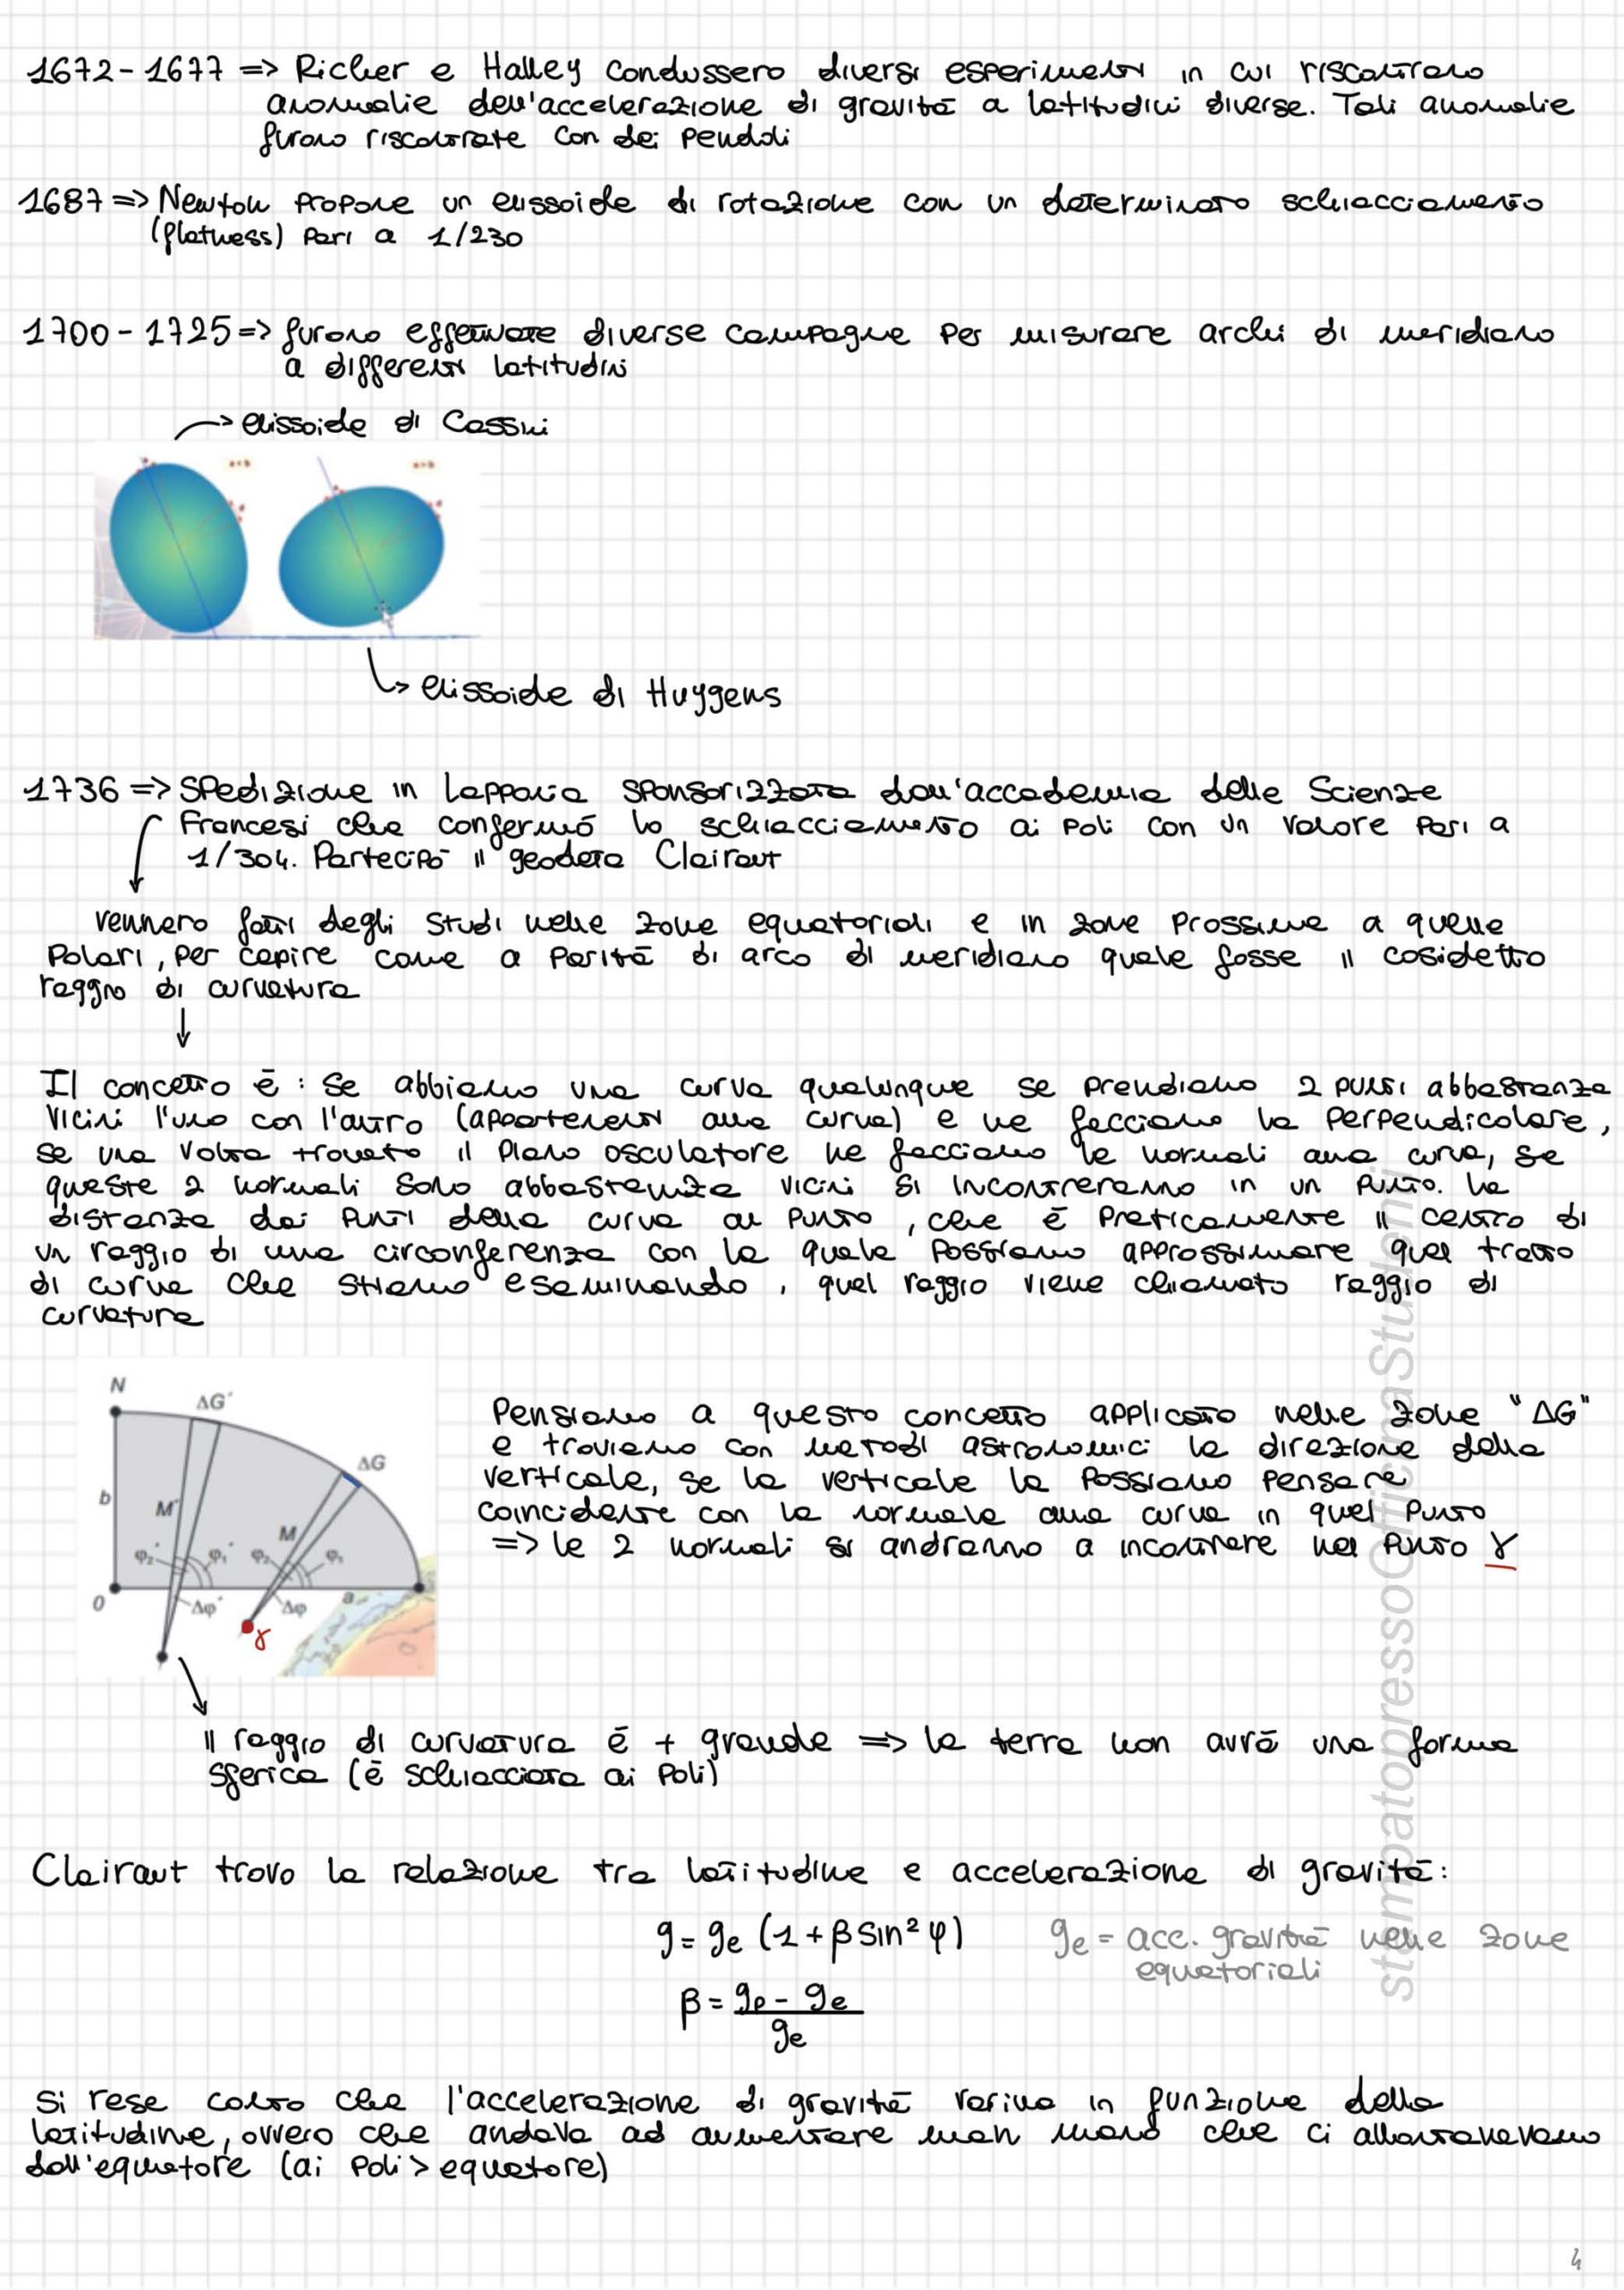 1672-1677 => Richer e Halley condussero diversi esperimenti in cui riscontrarono
anomalie dell'accelerazione di gravità a latitudini diverse. Tali anomalie
furono riscontrate con dei pendoli
1687 => Newton propone un ellissoide di rotazione con un determinato schiacciamento
(flatness) pari a 1/230
1700-1725 => furono effettuate diverse campagne per misurare archi di meridiano
a differenti latitudini
ellissoide di Cassini
a<b
a>b
ellissoide di Huygens
1736 => Spedizione in Lapponia sponsorizzata dall'accademia delle Scienze
Francesi che confermò lo schiacciamento ai poli con un valore pari a
1/304. Partecipò il geodeta Clairaut
vennero fatti degli studi nelle zone equatoriali e in zone prossime a quelle
polari, per capire come a parità di arco di meridiano quale fosse il cosidetto
raggio di curvatura
Il concetto è: se abbiamo una curva qualunque se prendiamo 2 punti abbastanza
vicini l'uno con l'altro (appartenenti alla curva) e ne facciamo la perpendicolare,
se una volta trovato il piano osculatore ne facciamo le normali alla curva, se
queste 2 normali sono abbastanza vicini si incontreranno in un punto. La
distanza dai punti della curva al punto, che è praticamente il centro di
un raggio di una circonferenza con la quale possiamo approssimare quel tratto
di curva che stiamo esaminando, quel raggio viene chiamato raggio di
curvatura
N
ΔG'
ΔG
b
M'
M
φ₂' φ₁' φ₂ φ₁
O
Δφ'
Δφ
a
γ
Pensiamo a questo concetto applicato nelle zone "ΔG"
e troviamo con metodi astronomici la direzione della
verticale, se la verticale la possiamo pensare
coincidente con la normale alla curva in quel punto
=> le 2 normali si andranno a incontrare nel punto γ
Il raggio di curvatura è + grande => la terra non avrà una forma
sferica (è schiacciata ai poli)
Clairaut trovo la relazione tra latitudine e accelerazione di gravità:
g = ge (1 + β sin² φ)
ge = acc. gravità nelle zone
equatoriali
β = gp - ge
ge
Si rese conto che l'accelerazione di gravità variva in funzione della
latitudine, ovvero che andava ad aumentare man mano che ci allontanavamo
dall'equatore (ai poli > equatore)
stampatopressoOfficinaStudenti
4